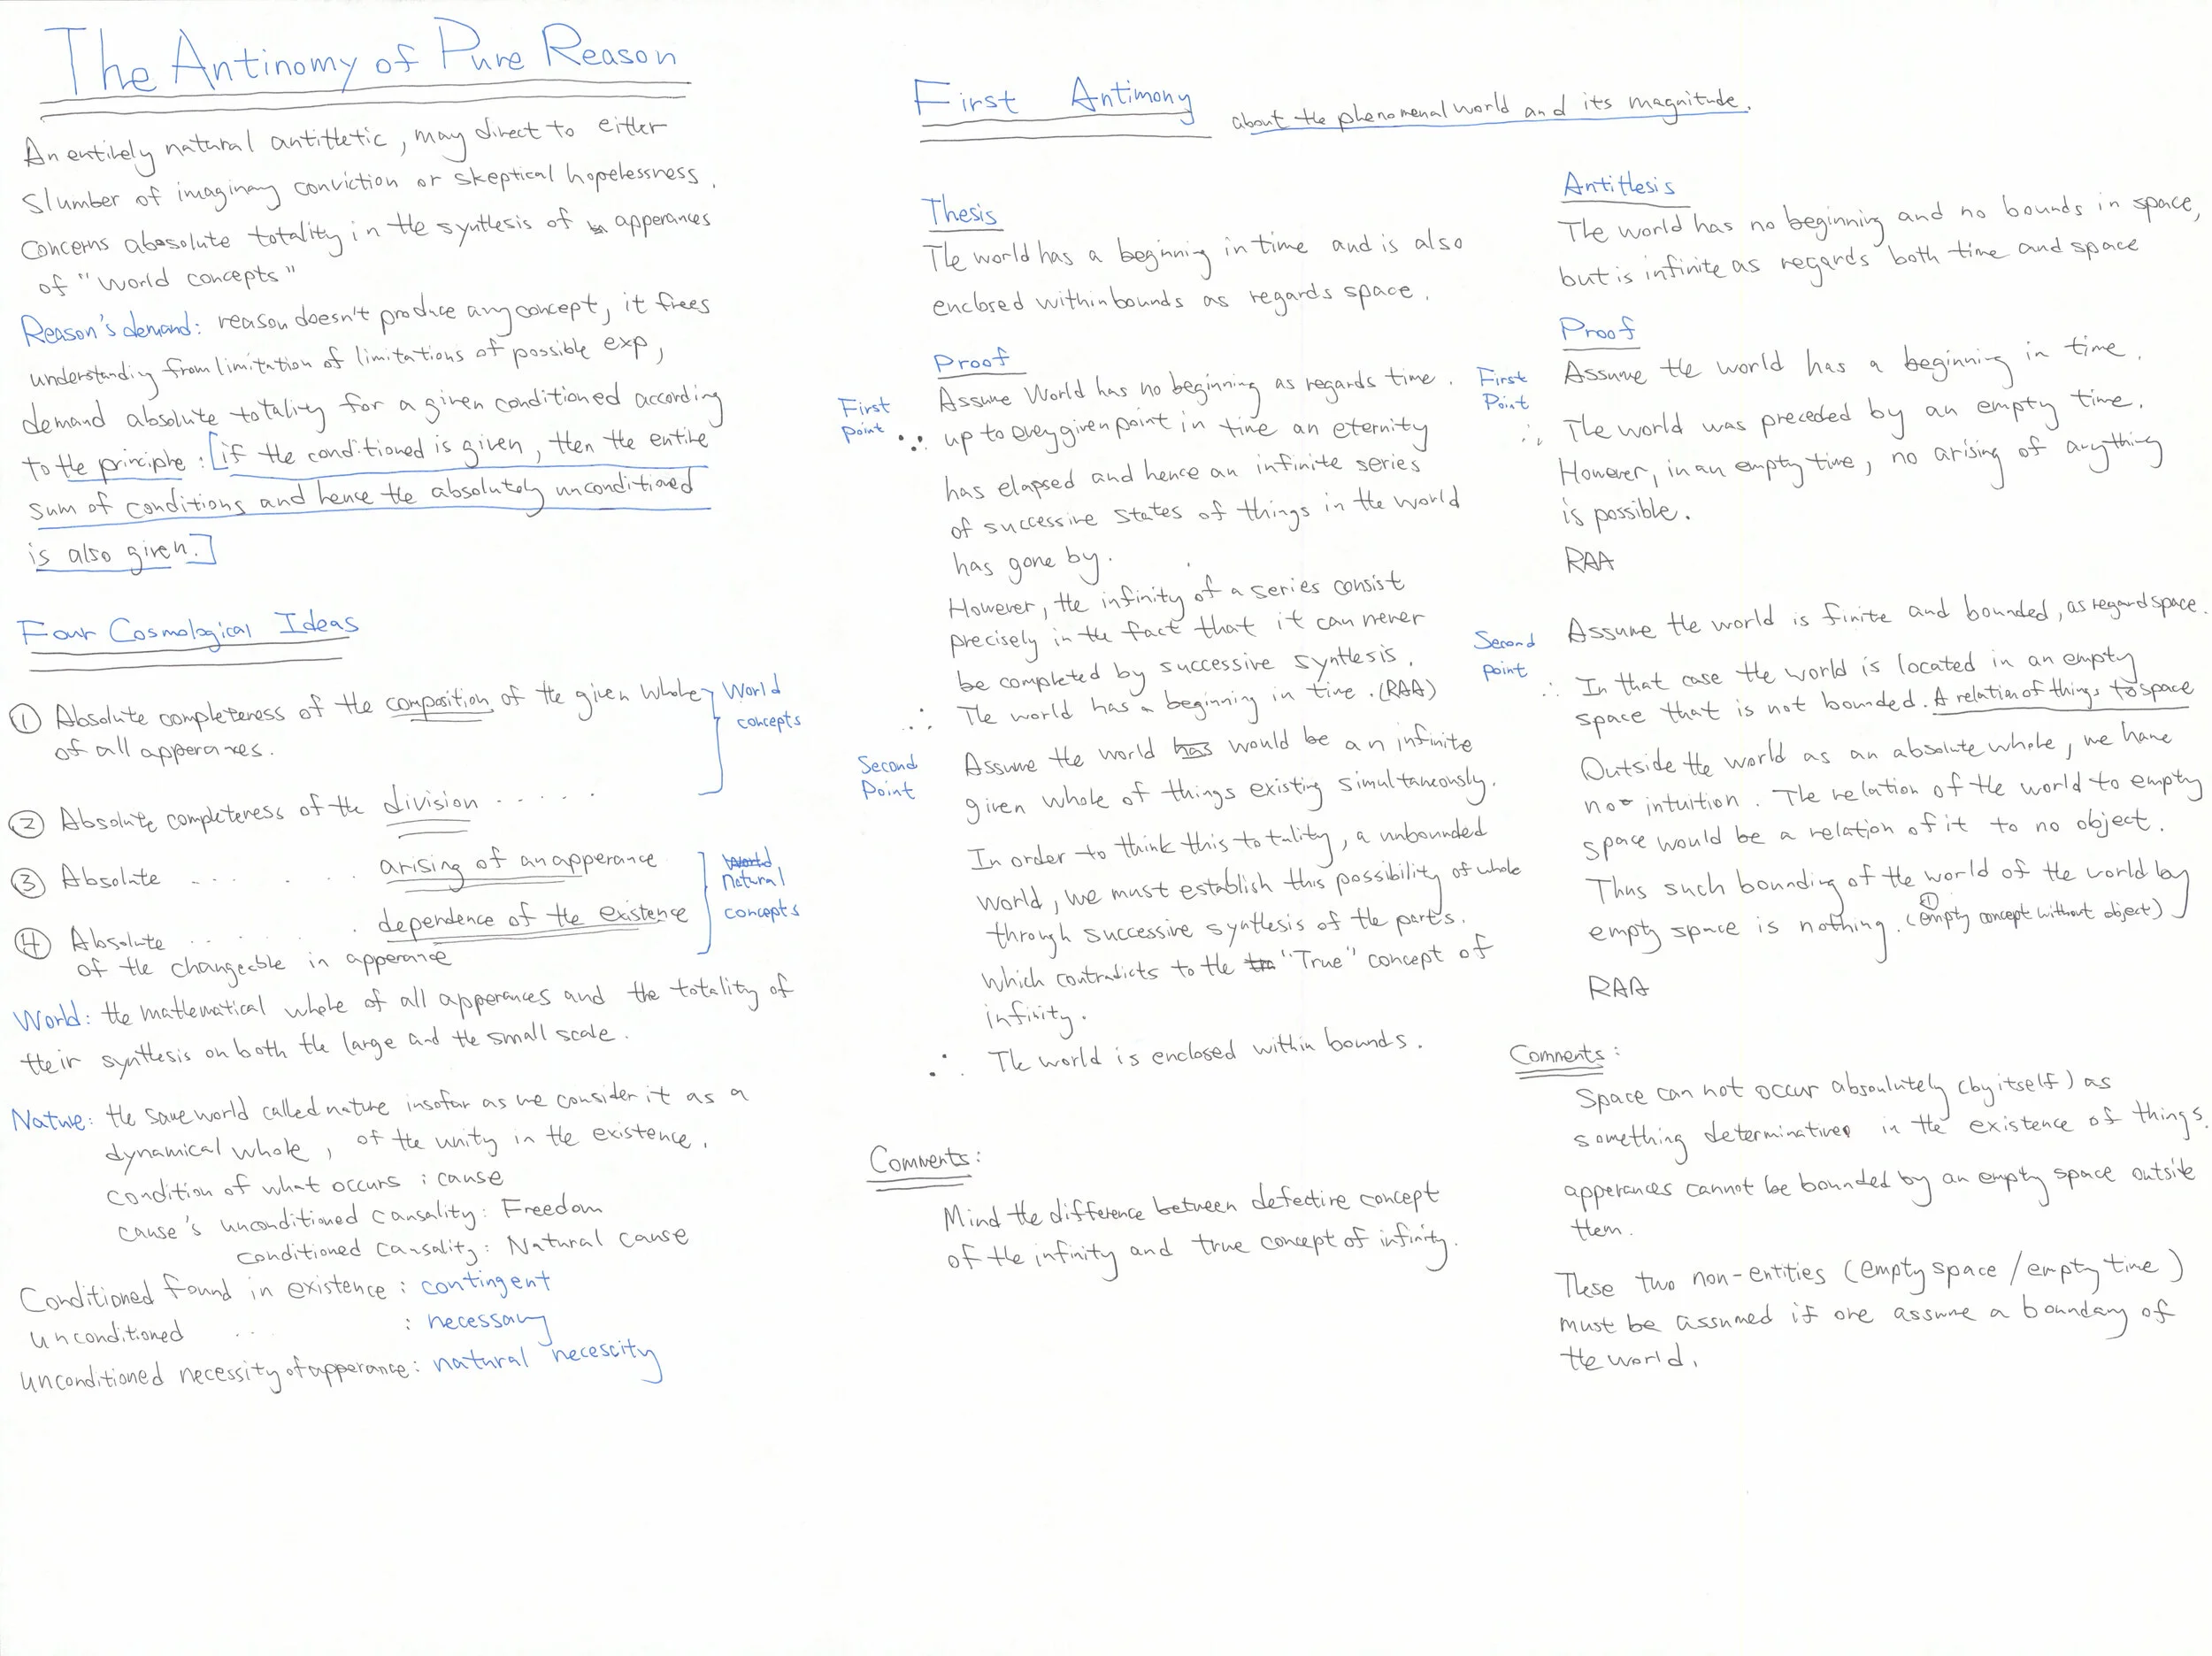 The Antinomy of Pure Reason
An entirely natural antithetic, may direct to either
slumber of imaginary conviction or skeptical hopelessness.
Concerns absolute totality in the synthesis of apperances
of "world concepts"
Reason's demand: reason doesn't produce any concept, it frees
understanding from limitation of limitations of possible exp,
demand absolute totality for a given conditioned according
to the principle: [if the conditioned is given, then the entire
sum of conditions and hence the absolutely unconditioned
is also given.]
Four Cosmological Ideas
① Absolute completeness of the composition of the given whole
of all apperances.
World
concepts
② Absolute completeness of the division .....
③ Absolute .... arising of an apperance
④ Absolute .... dependence of the existence
of the changeable in apperance
World
Natural
concepts
World: the mathematical whole of all apperances and the totality of
their synthesis on both the large and the small scale.
Nature: the same world called nature insofar as we consider it as a
dynamical whole, of the unity in the existence.
condition of what occurs: cause
cause's unconditioned causality: Freedom
conditioned causality: Natural cause
Conditioned found in existence: contingent
unconditioned .. : necessary
unconditioned necessity of apperance: natural necescity
First Antimony about the phenomenal world and its magnitude.
Thesis
The world has a beginning in time and is also
enclosed within bounds as regards space.
Proof
First
point
Assume World has no beginning as regards time.
∵ up to every given point in time an eternity
has elapsed and hence an infinite series
of successive states of things in the world
has gone by.
However, the infinity of a series consist
precisely in the fact that it can never
be completed by successive synthesis.
∴ The world has a beginning in time. (RAA)
Second
Point
Assume the world has would be an infinite
given whole of things existing simultaneously.
In order to think this totality, a unbounded
world, we must establish this possibility of whole
through successive synthesis of the parts.
which contradicts to the "True" concept of
infinity.
∴ The world is enclosed within bounds.
Comments:
Mind the difference between defective concept
of the infinity and true concept of infinity.
Antithesis
The world has no beginning and no bounds in space,
but is infinite as regards both time and space
Proof
First
Point
Assume the world has a beginning in time.
∴ The world was preceded by an empty time.
However, in an empty time, no arising of anything
is possible.
RAA
Second
point
Assume the world is finite and bounded, as regard space.
∴ In that case the world is located in an empty
space that is not bounded. A relation of things to space
Outside the world as an absolute whole, we have
no intuition. The relation of the world to empty
space would be a relation of it to no object.
Thus such bounding of the world of the world by
empty space is nothing. (① empty concept without object)
RAA
Comments:
Space can not occur absolutely (by itself) as
something determinative in the existence of things.
apperances cannot be bounded by an empty space outside
them.
These two non-entities (empty space / empty time)
must be assumed if one assume a boundary of
the world.